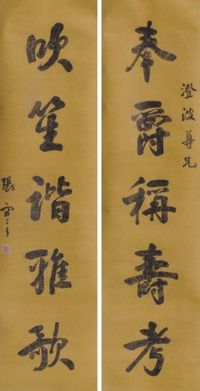 澄波尊兄
奉爵稱壽考
吹笙諧雅歌
張